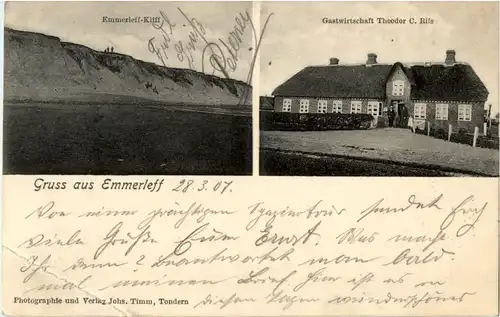 Emmerleff-Kliff
Gastwirtschaft Theodor C. Rils
Gruss aus Emmerleff 28.3.07.
Von einer prächtigen Spaziertour sendet Euch
viele Grüße Eur Ernst. Was macht
Ihr denn? Beantwortet man bald
mal meinen Brief. Hier ist es an
diesen Tagen wunderschönes
Photographie und Verlag Johs. Timm, Tondern